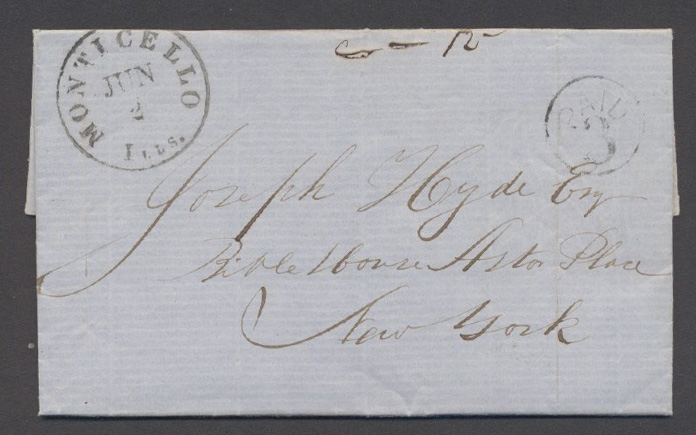 MONTICELLO
JUN
2
ILLS.
PAID
3
Joseph Hyde Esq
Bible House Astor Place
New York